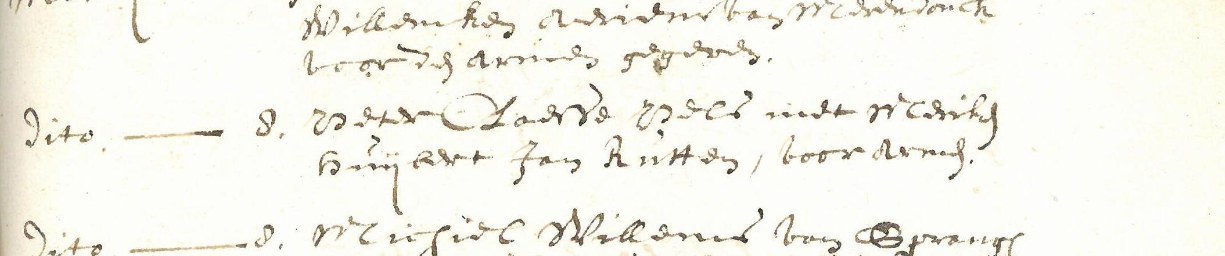 Willemken Aeriens van Meerdonck
voor den armen gegeven.
Dito. 8. Peter Claesse Pels met Meriken
Huijbert Jan Rutten, voor armen.
Dito 8. Michiel Willems van Sprangh